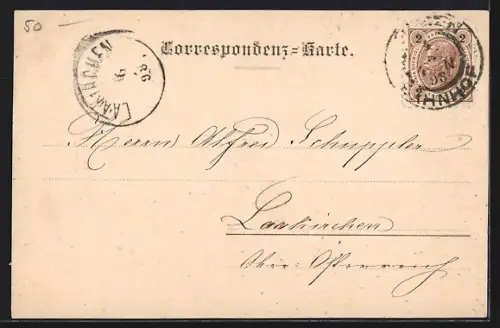 50
Correspondenz-Karte.
LAAKIRCHEN
98
2
BAHNHOF
Herrn Alfred Schuppler
Laakirchen
Ober-Österreich